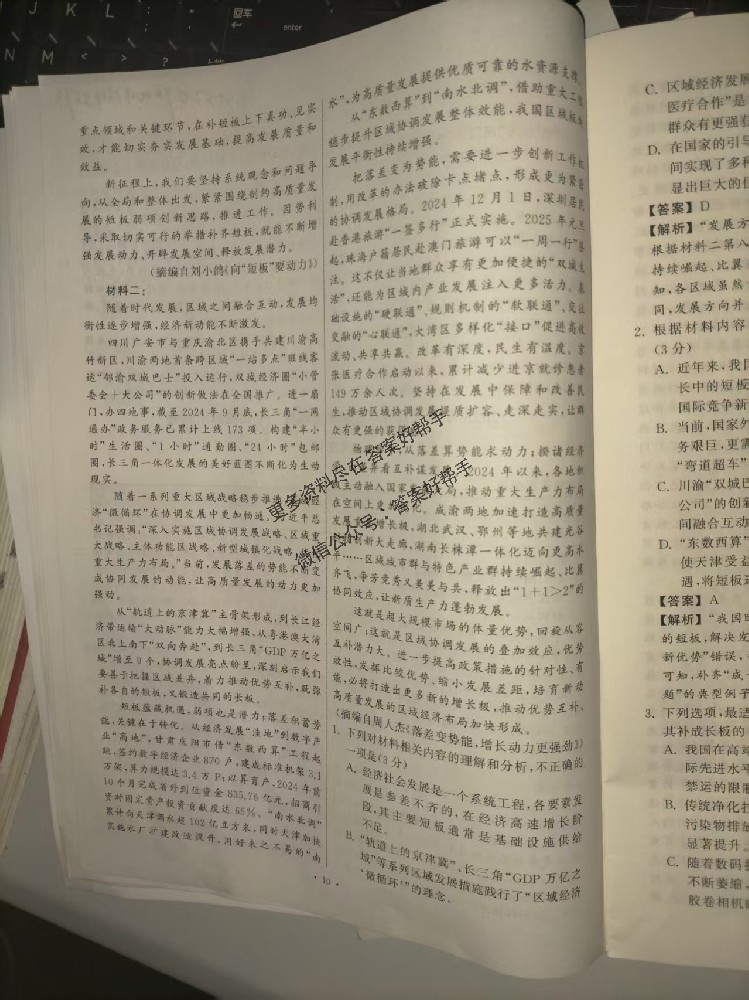 重点领域和关键环节,在补短板上下真功、见实
效,才能切实夯实发展基础,提高发展质量和
效益。
新征程上,我们要坚持系统观念和问题导
向,从全局和整体出发,紧紧围绕制约高质量发
展的短板弱项创新思路、推进工作。因势利
导、采取切实可行的举措补齐短板,就能不断增
强发展动力、开辟发展空间、释放发展潜力。
材料二:
随着时代发展,区域之间融合互动,发展均
衡性逐步增强,经济新动能不断激发。
四川广安市与重庆渝北区携手共建川渝高
竹新区,川渝两地首条跨区域“一站多点”班线客
运“邻渝双城巴士”投入运行,双城经济圈“小管
委会+大公司”的创新做法在全国推广。进一扇
门、办四地事,截至2024年9月底,长三角“一网
通办”政务服务已累计上线173项。构建“半小
时”生活圈、“1小时”通勤圈、“24小时”包邮
圈,长三角一体化发展的美好蓝图不断化为生动
现实。
随着一系列重大区域战略稳步推进
济“微循环”在协调发展中更加畅通。
书记强调,“深入实施区域协调发展战略、区域重
大战略、主体功能区战略、新型城镇化战略
重大生产力布局。”当前,发展落差的势能不断变
成协同发展的动能,让高质量发展的动力更加
强劲。
从“轨道上的京津冀”主骨架形成,到长江经
济带运输“大动脉”能力大幅增强,从粤港澳大湾
区北上南下“双向奔赴”,到长三角“GDP万亿之
城”增至9个,协调发展亮点纷呈,深刻启示我们
要善于把握区域差异,着力推动优势互补,既弥
补各自的短板,又锻造共同的长板。
短板蕴藏机遇,弱项也是潜力;落差都蓄势
能,关键在于转化。从经济发展“洼地”到数字产
业“高地”,甘肃庆阳市借“东数西算”工程起
跳,签约数字经济企业870户,建成标准机架3.1
万架,算力规模达3.4万P;以算育产,2024年前
10个月完成省外到位资金835.76亿元,招商引
资对固定资产投资贡献度达65%。“南水北调”
累计向天津调水超102亿立方米,同时天津加快
水”,为高质量发展提供优质可靠的水资源支撑。
从“东数西算”到“南水北调”,借助重大工程
稳步提升区域协调发展整体效能,我国区域
发展平衡性持续增强。
把落差变为势能,需要进一步创新工作机
制,用改革的办法破除卡点堵点,形成更为紧密
的协调发展格局。2024年12月1日,深圳居民
赴香港旅游“一签多行”正式实施。2025年元旦
起,珠海户籍居民赴澳门旅游可以“一周一行”签
注。这不仅让当地群众享有更加便捷的“双城生
活”,还能为区域内产业发展注入更多活力。基
础设施的“硬联通”、规则机制的“软联通”、交往
交融的“心联通”,大湾区多样化“接口”促进高效
流动、共享共赢。改革有深度,民生有温度。京
张医疗合作启动以来,累计减少进京就诊患者
149万余人次。坚持在发展中保障和改善民
生,推动区域协调发展提质扩容、走深走实,让群
众有更强的获得
从落差算势能求动力;揆诸经济
并看互补谋发
2024年以来,各地积
主动融入国家
局,推动重大生产力布局
在空间上更
成渝两地加速打造高质量
发展
增长极,湖北武汉、鄂州等地共建光谷
创新大走廊,湖南长株潭一体化迈向更高水
平……区域城市群与特色产业群持续崛起、比翼
齐飞,争芳竞秀又美美与共,释放出“1+1>2”的
协同效应,让新质生产力蓬勃发展。
这就是超大规模市场的体量优势,回旋从容
空间广;这就是区域协调发展的叠加效应,优势
互补潜力大。进一步提高政策措施的针对性、有
效性,发挥比较优势、缩小发展差距,培育新动
能,必将打造出更多新的增长极,推动优势互补、
高质量发展的区域经济布局加快形成。
(摘编自周人杰《落差变势能,增长动力更强劲》)
1. 下列对材料相关内容的理解和分析,不正确的
一项是(3分)
A. 经济社会发展是一个系统工程,各要素发
展是参差不齐的,在经济高速增长阶
段,其主要短板通常是基础设施供给
不足。
B. “轨道上的京津冀”、长三角“GDP万亿之
城”等系列区域发展措施践行了“区域经济
‘微循环’”的理念。
· 10 ·
更多资料尽在 答案好帮手
微信公众号 答案好帮手
C. 区域经济发展
医疗合作”是
群众有更强
D. 在国家的引导
间实现了多种
显出巨大的
【答案】D
【解析】“发展方
根据材料二第八
持续崛起、比翼
知,各区域虽然
同,发展方向并
2. 根据材料内容
(3分)
A. 近年来,我国
长中的短板
国际竞争新
B. 当前,国家外
务艰巨,更需
“弯道超车”
C. 川渝“双城巴
公司”的创新
间融合互动
D. “东数西算”
使天津受益
遇,将短板
【答案】A
【解析】“我国
的短板,解决发
新优势”错误,
可知,补齐“成
题”的典型例子
3. 下列选项,最适
其补成长板的
A. 我国在高端
际先进水平
禁运的限制
B. 传统净化技
污染物排放
显著提升。
C. 随着数码
不断萎缩,
胶卷相机
enter
N
M